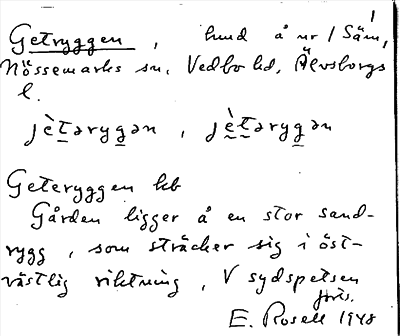 Getryggen, hmd å nr 1 Säm,
Nössemarks sn. Vedbo hd, Älvsborgs
l.
jètərygən, jètərygən
Geteryggen kb
Gården ligger å en stor sand-
rygg, som sträcker sig i öst-
västlig riktning, V sydspetsen
E. Rosell 1948